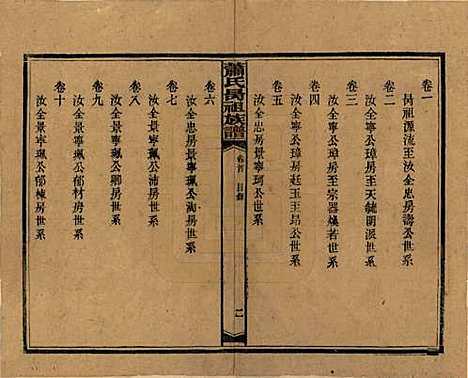 卷一
昺祖源流至汝全忠房壽公世系
卷二
汝全寧公璋房至天毓朗派世系
卷三
汝全寧公璋房至宗器煥若世系
卷四
汝全寧公璋房廷玉至昂公世系
卷五
汝全忠房景寧珂公世系
蕭氏昺祖族譜
卷首
目錄
二
卷六
汝全忠房景寧珮公洵房世系
卷七
汝全景寧珮公沛房世系
卷八
汝全景寧珮公卿房世系
卷九
汝全景寧珮公郁材房世系
卷十
汝全景寧珮公郁棟房世系